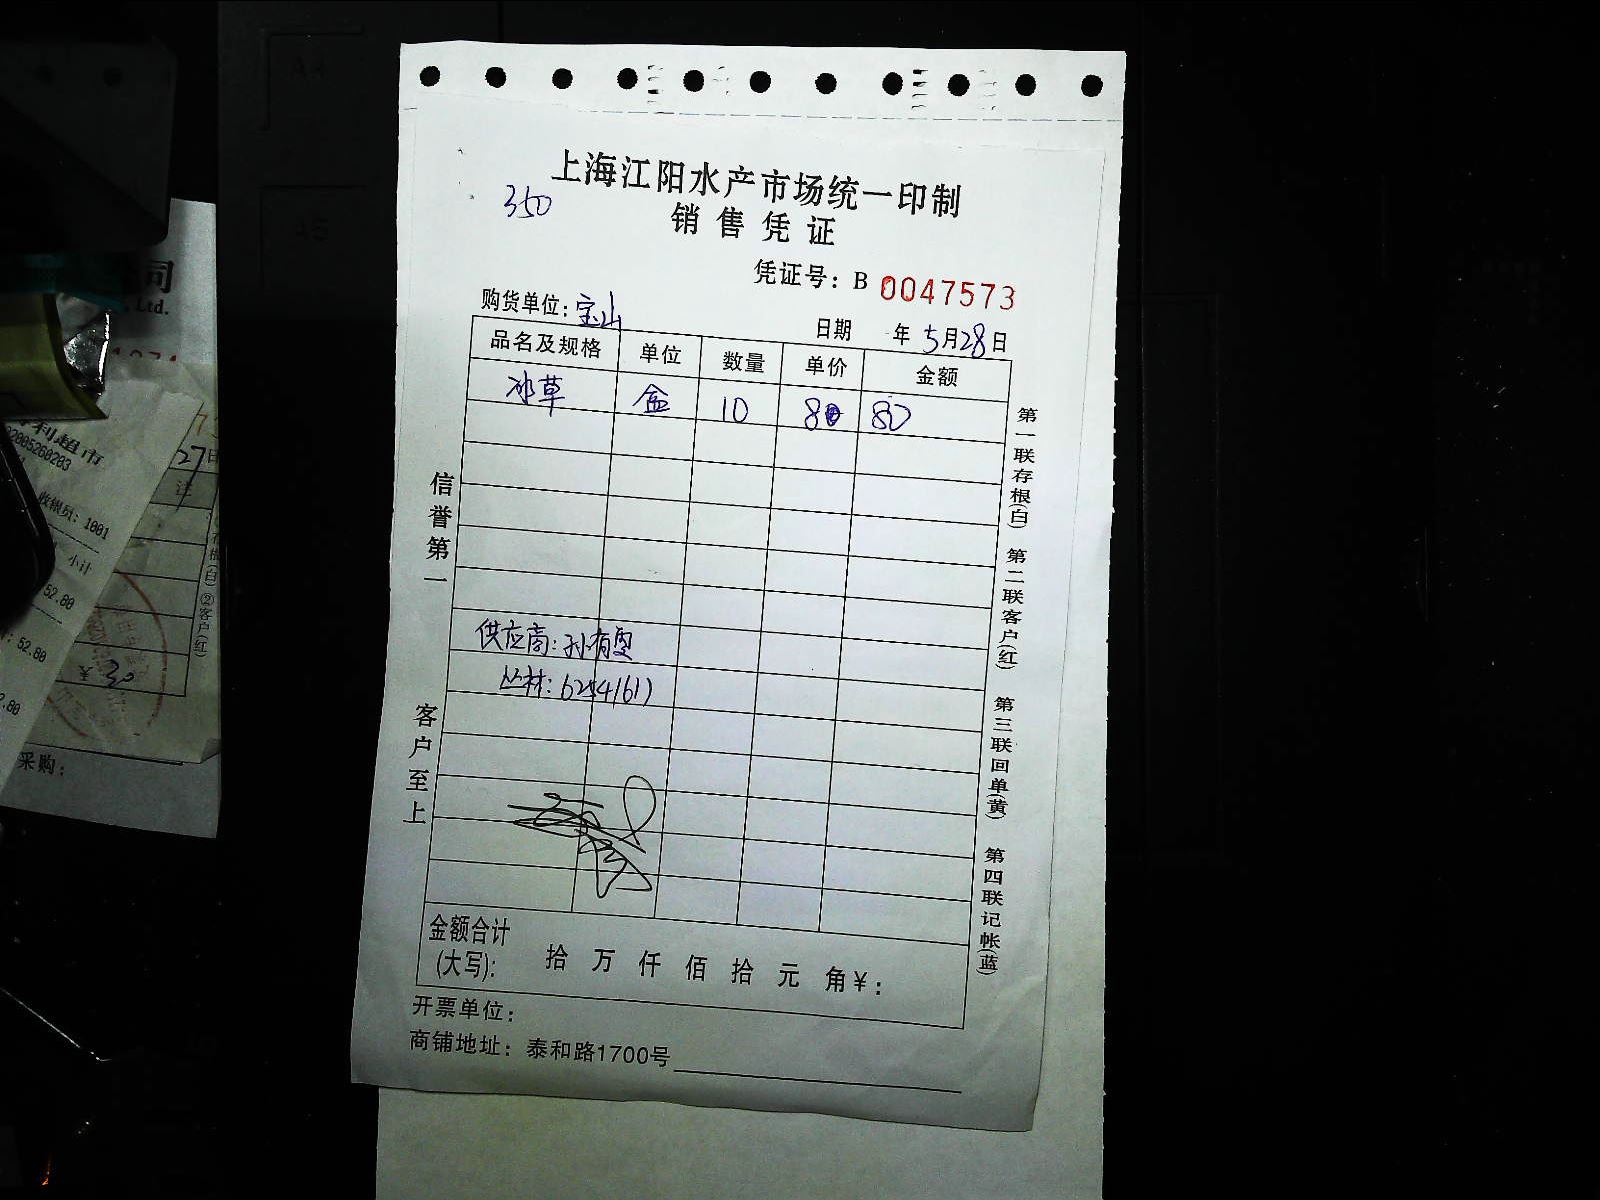 上海江阳水产市场统一印制
350
销售凭证
凭证号：B 0047573
购货单位：宝山
日期 年 5月28日
品名及规格 单位 数量 单价 金额
冰草 盒 10 8 80
供应商：孙有
6254161
信誉第一
客户至上
第一联存根(白) 第二联客户(红) 第三联回单(黄) 第四联记帐(蓝)
金额合计
(大写)： 拾 万 仟 佰 拾 元 角￥：
开票单位：
商铺地址：泰和路1700号
司
Ltd.
利超市
02005260203
收银员：1001
小计
52.80
52.80
2.80
27日
注
存根(白)②客户(红)
￥30
采购：